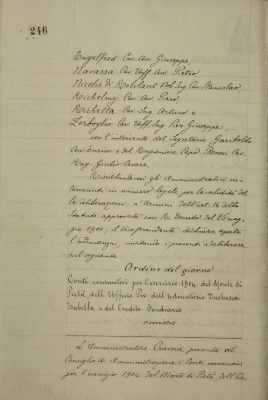 246
Engelfred Cav. Avv. Giuseppe,
Navassa Cav. Uff. Avv. Pietro
Nicolis di Robilant Nob. Ing. Cav. Stanislao
Reichelmy Cav. Avv. Piero,
Richetta Cav. Ing. Arturo e
Zerboglio Cav. Uff. Ing. Pier Giuseppe.
con l'intervento del Segretario Gariboldi
Avv. Enrico e del Ragioniere Capo Rossi Cav.
Rag. Giulio Cesare.
Riscontratosi gli Amministratori in-
tervenuti in numero legale per la validità del-
le deliberazioni, a' termini dell'art. 14 dello
Statuto approvato con R. Decreto del 25 mag-
gio 1902, il Vicepresidente dichiara aperta
l'adunanza, invitando i presenti a deliberare
sul seguente
Ordine del giorno
Conti consuntivi per l'esercizio 1904 del Monte di
Pietà, dell'Ufficio Pio, dell'Ospizio Duchessa
Isabella e del Credito Fondiario
omissis
L'Amministratore presenta al
Consiglio di Amministrazione i Conti consuntivi
per l'esercizio 1904 del Monte di Pietà, dell'